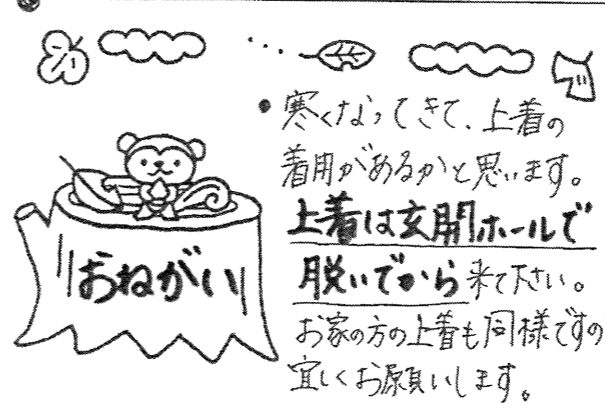 おねがい
・寒くなってきて、上着の
着用があるかと思います。
上着は玄関ホールで
脱いでから来て下さい。
お家の方の上着も同様ですの
宜しくお願いします。